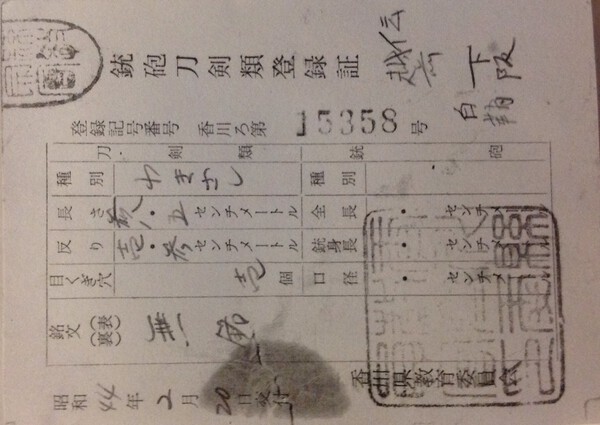 伝
越前
下阪
白鞘
銃砲刀剣類登録証
登録記号番号 香川ろ第 15358 号
刀剣類 銃砲
種別 わきざし 種別
長さ 八・五センチメートル 全長 ・ センチメートル
反り 壱・参センチメートル 銃身長 ・ センチメートル
目くぎ穴 壱個 口径 ・ センチメートル
銘文 (表) 無
(裏) 銘
昭和44年2月20日交付
香川県教育委員会